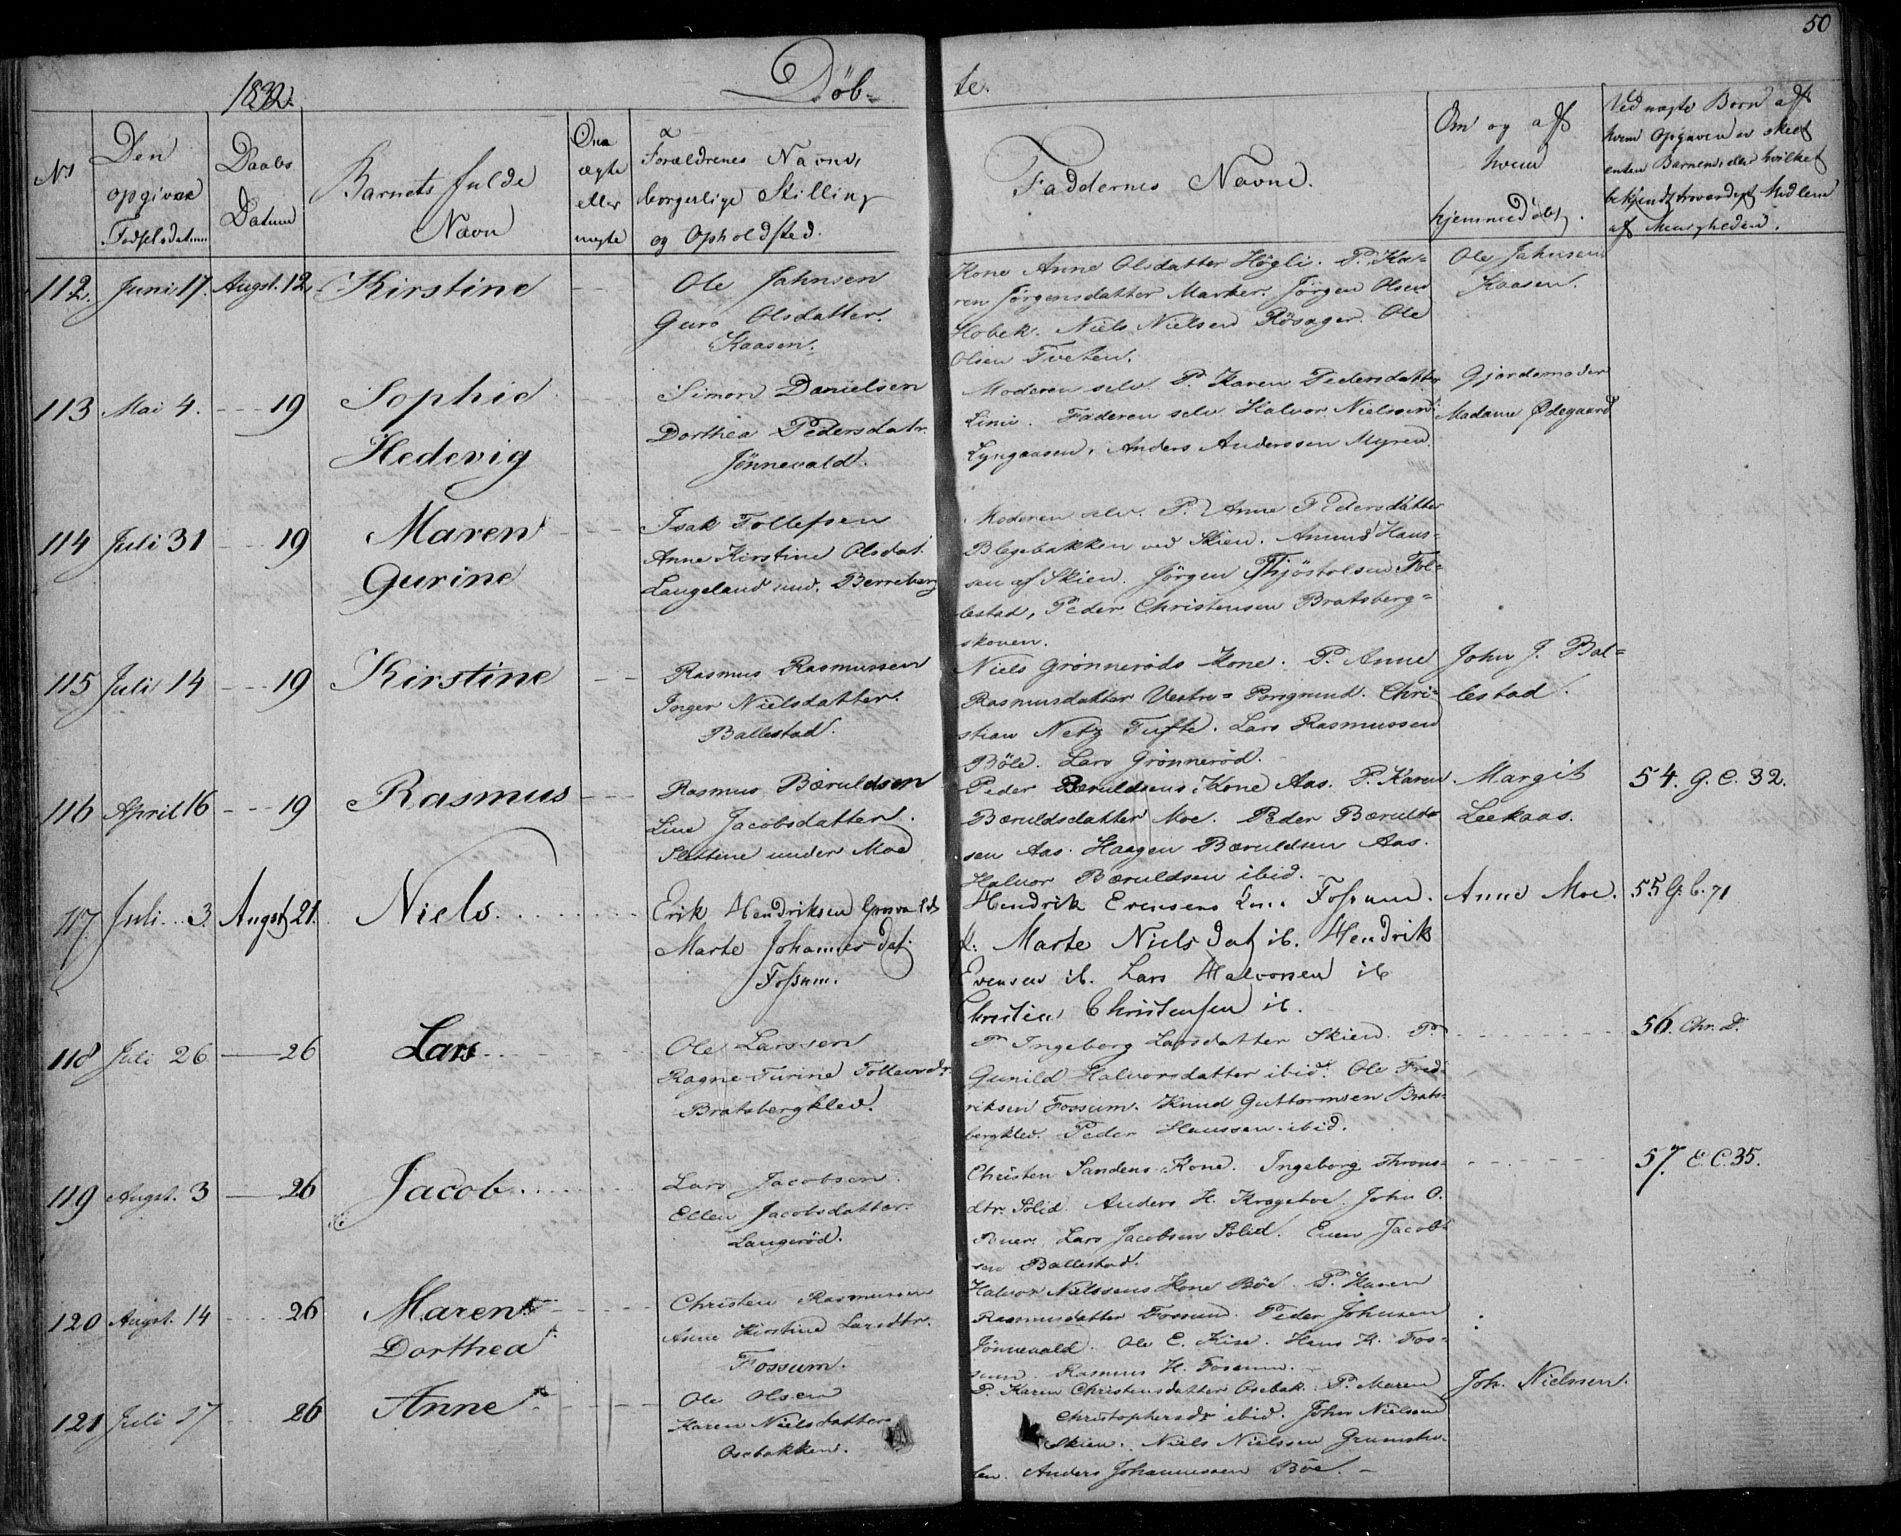 50
1832.
Døb-
te.
No
Den
opgivne
Fødselsdatum
Daabs
Datum
Barnets fulde
Navn
Om
ægte
eller
uægte
Forældrenes Navne,
borgerlige Stilling
og Opholdssted.
Faddernes Navne.
Om og af
hvem
hjemmedøbt.
Ved uægte Børn af
hvem Opgaven er skeet
enten Barnemoder eller hvilket
bekjendt troværdigt Medlem
af Menigheden.
112. Juni 17. Augst. 12. Kirstine
Ole Jahnsen
Guro Olsdatter.
Kaasen.
Kone Anne Olsdatter Høgli. P. Ka-
ren Jørgensdatter Marker. Jørgen Olsen
Hobek. Niels Nielsen Røsager. Ole
Olsen Tveten.
Ole Jahnsen
Kaasen.
113 Mai 4. 19 Sophie
Hedevig
Simon Danielsen
Dorthea Pedersdatr.
Jønnevald.
Moderen selv. P. Karen Pedersdatter
Limi. Faderen selv. Halvor Nielssen
Lyngaasen, Anders Anderssen Myren.
Gjordemoder
Madame Ødegaard
114 Juli 31 19 Maren
Gurine
Isak Tollefsen
Anne Kirstine Olsdat.
Langeland und. Berreberg
Moderen selv. P. Anne Pedersdatter
Blegebakken ved Skien. Amund Hans-
sen af Skien. Jørgen Thjøstolsen Fol-
lestad, Peder Christensen Bratsberg-
skoven.
115 Juli 14 19 Kirstine
Rasmus Rasmussen
Inger Nielsdatter.
Ballestad.
Niels Grønnerøds Kone. P. Anne
Rasmusdatter Vestre-Porsgrund. Chri-
stian Netz Tufte. Lars Rasmussen
Bøle. Lars Grønnerød.
John J. Bal-
lestad.
116 April 16 19 Rasmus
Rasmus Bæruldsen
Live Jacobsdatter.
Slettene under Moe
Peder Bæruldsens Kone Aas. P. Karen
Bæruldsdatter Moe. Peder Bæruld-
sen Aas. Haagen Bæruldsen Aas.
Halvor Bæruldsen ibid.
Margit
Leekaas.
54. G. C. 32.
117. Juli 3. Augst 21. Niels.
Erik Hendriksen
Marte Johannesdat.
Fossum.
Hendrik Evensens Kone Fossum.
P. Marte Nielsdat ib. Hendrik
Evensen ib. Lars Halvorsen ib
Christen Christensen ib.
Anne Moe.
55 G. C. 71
118 Juli 26 26 Lars
Ole Larssen
Ragne Turine Tollevsdr.
Bratsbergklev.
P. Ingeborg Larsdatter Skien. P.
Gunild Halvorsdatter ibid. Ole Fred-
riksen Fossum. Knud Guttormsen Brats-
bergklev. Peder Hanssen ibid.
56. Chr. D.
119 Augst. 3 26 Jacob.
Lars Jacobsen.
Ellen Jacobsdatter.
Langerød.
Christen Sandens Kone. Ingeborg Throns-
dtr. Sølid. Anders H. Kragetoe. John O.
Lars Jacobsen Sølid. Even Jacob-
sen Ballestad.
57. E. C. 35.
120 Augst. 14 26 Maren
Dorthea
Christen Rasmussen
Anne Kirstine Larsdtr.
Fossum.
Halvor Nielssens Kone Bøe. P. Karen
Rasmusdatter Fossum. Peder Johnsen
Jønnevald. Ole E. Kise. Hans K. Fos-
sum. Rasmus H. Fossum.
121 Juli 27 26 Anne
Ole Olsen
Karen Nielsdatter
Osebakken.
P. Karen Christensdatter Osebak. P. Maren
Christophersdr ibid. John Nielsen
Skien. Niels Nielssen Grumsho-
len. Anders Johannessen Bøe.
Joh. Nielssen.